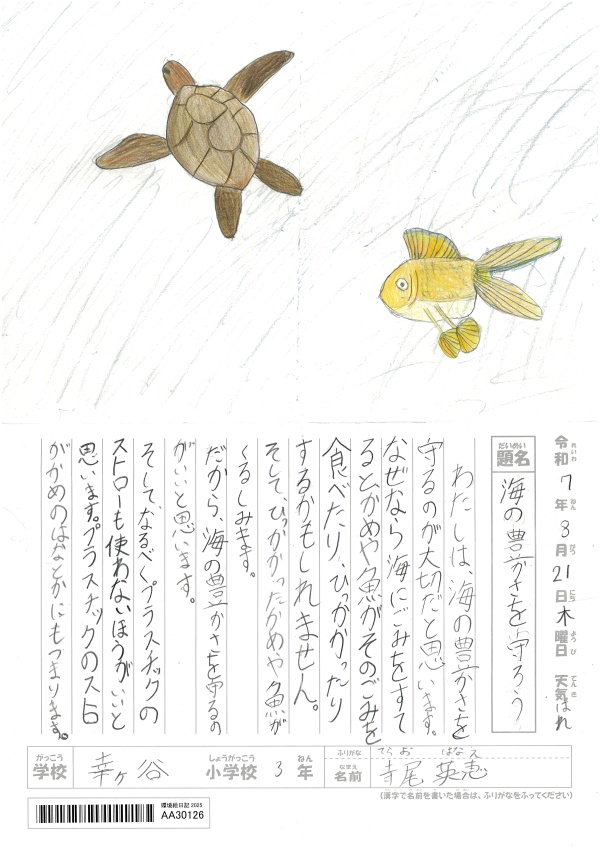 令和7年8月21日木曜日 天気はれ
れいわ ねん がつ にち ようび てんき
だいめい
題名 海の豊かさを守ろう
わたしは、海の豊かさを
守るのが大切だと思います。
なぜなら海にごみをすて
るとかめや魚がそのごみを
食べたり、ひっかかったり
するかもしれません。
そして、ひっかかったかめや魚が
くるしみます。
だから、海の豊かさを守るの
がいいと思います。
そして、なるべくプラスチックの
ストローも使わないほうがいいと
思います。プラスチックのスト口
がかめのはなとかにもつまります。
がっこう しょうがっこう ねん
学校 幸ヶ谷 小学校 3年
ふりがな てらお はなえ
なまえ
名前 寺尾 英恵
(漢字で名前を書いた場合は、ふりがなをふってください)
環境絵日記 2025
AA30126